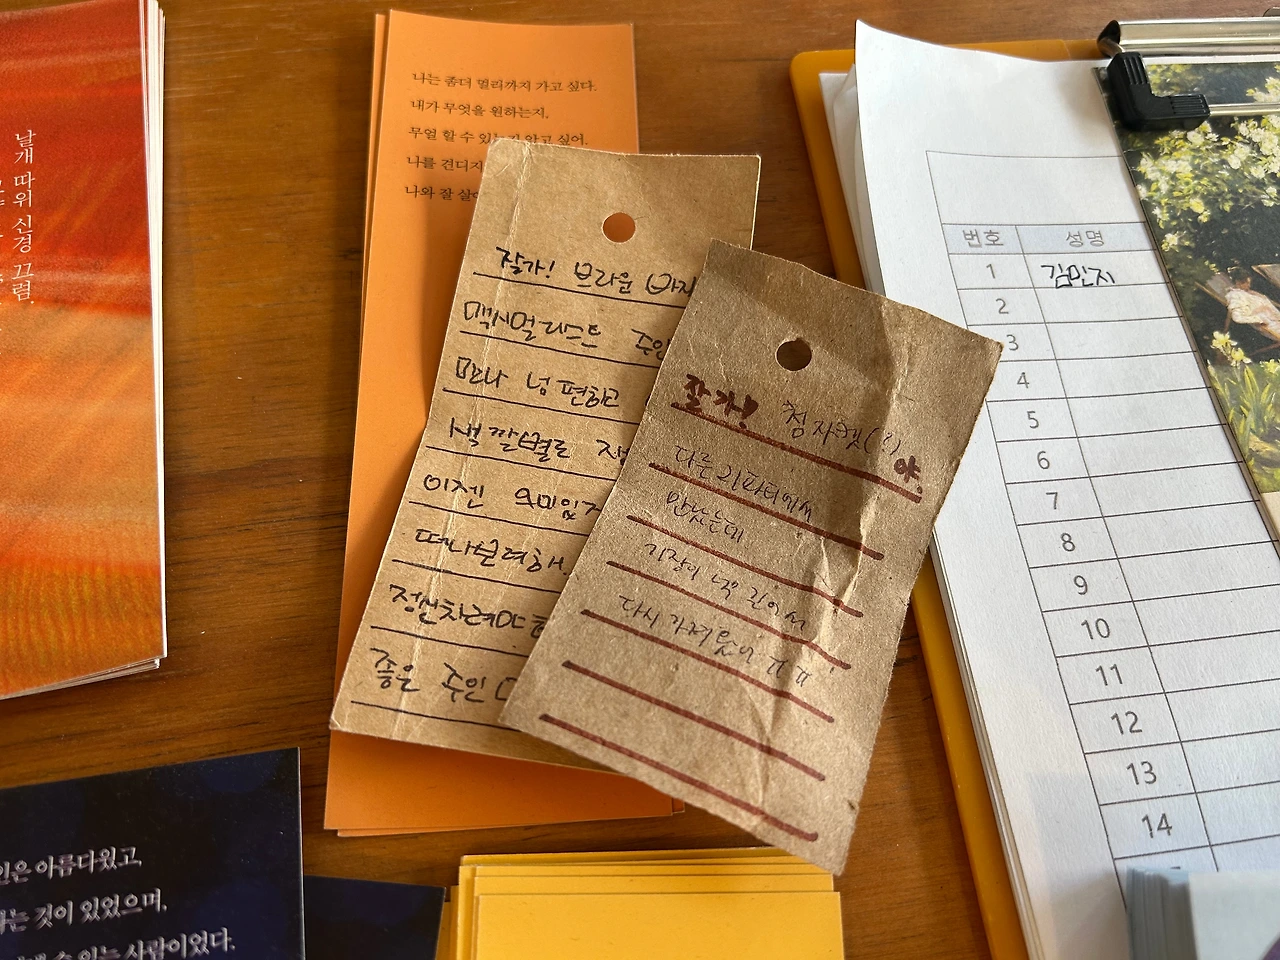 날개 따위 신경 끄럼.
나는 좀더 멀리까지 가고 싶다.
내가 무엇을 원하는지,
무얼 할 수 있는지 알고 싶어.
나를 견디지
나와 잘 살아
잘가! 브라운 바지
맥시멀리스트 주인
만나 넘 편하고
색깔별로
이젠
떠나보려해.
정신차려야
좋은 주인
잘가! 청자켓(1)야.
다른 리파티에서
만났는데
기장이 너무 길어서
다시 가져왔어 ㅠㅠ
번호 성명
1 김민지
2
3
4
5
6
7
8
9
10
11
12
13
14
아름다웠고,
것이 있었으며,
있는 사람이었다.